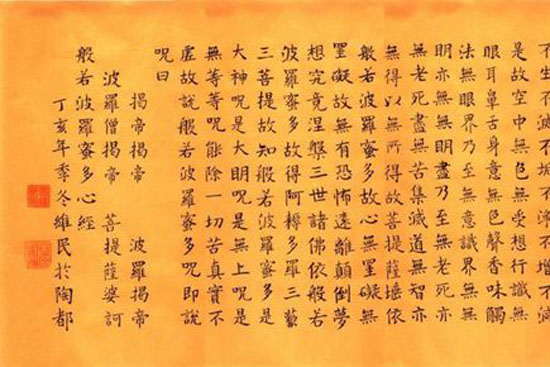 不生不滅不垢不淨不增不減
是故空中無色無受想行識無
眼耳鼻舌身意無色聲香味觸
法無眼界乃至無意識界無無
明亦無無明盡乃至無老死亦
無老死盡無苦集滅道無智亦
無得以無所得故菩提薩埵依
般若波羅蜜多故心無罣礙無
罣礙故無有恐怖遠離顛倒夢
想究竟涅槃三世諸佛依般若
波羅蜜多故得阿耨多羅三藐
三菩提故知般若波羅蜜多是
大神呪是大明呪是無上呪是
無等等呪能除一切苦真實不
虛故說般若波羅蜜多呪即說
呪曰
揭帝揭帝 波羅揭帝
波羅僧揭帝 菩提薩婆訶
般若波羅蜜多心經
丁亥年季冬維民於陶都